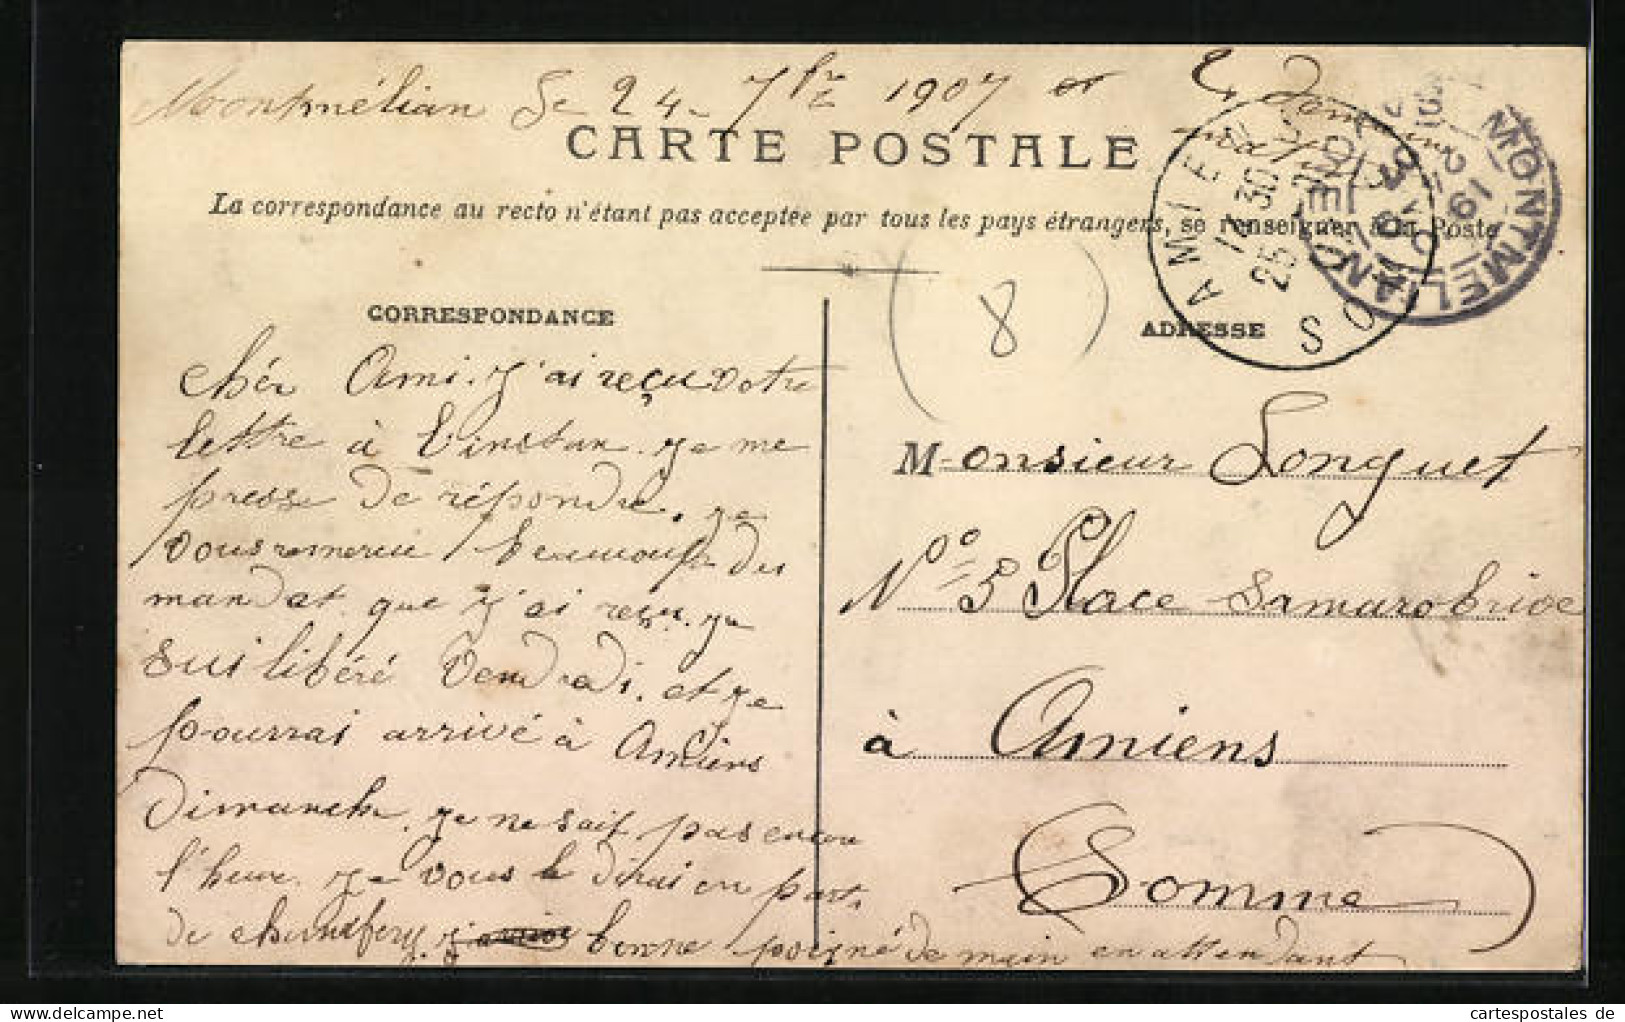 Montmélian le 24 7bre 1907
CARTE POSTALE
La correspondance au recto n'étant pas acceptée par tous les pays étrangers, se renseigner à la Poste
(8)
AMIENS
SOMME
25
MONTMELIAN
CORRESPONDANCE
chér Ami. j'ai reçu votre
lettre à l'instan. je me
presse de répondre. je
vous remercie beaucoup des
mandat que j'ai reçu. je
sui libéré Vendredi. et je
pourrai arrivé à Amiens
Dimanche. je ne sait pas encore
l'heure. je vous le dirai en part.
de chambery. bonne poigné de main en attendant
ADRESSE
Monsieur Longuet
No 5 Place Samarobrive
à Amiens
(Somme)
cartespostales de